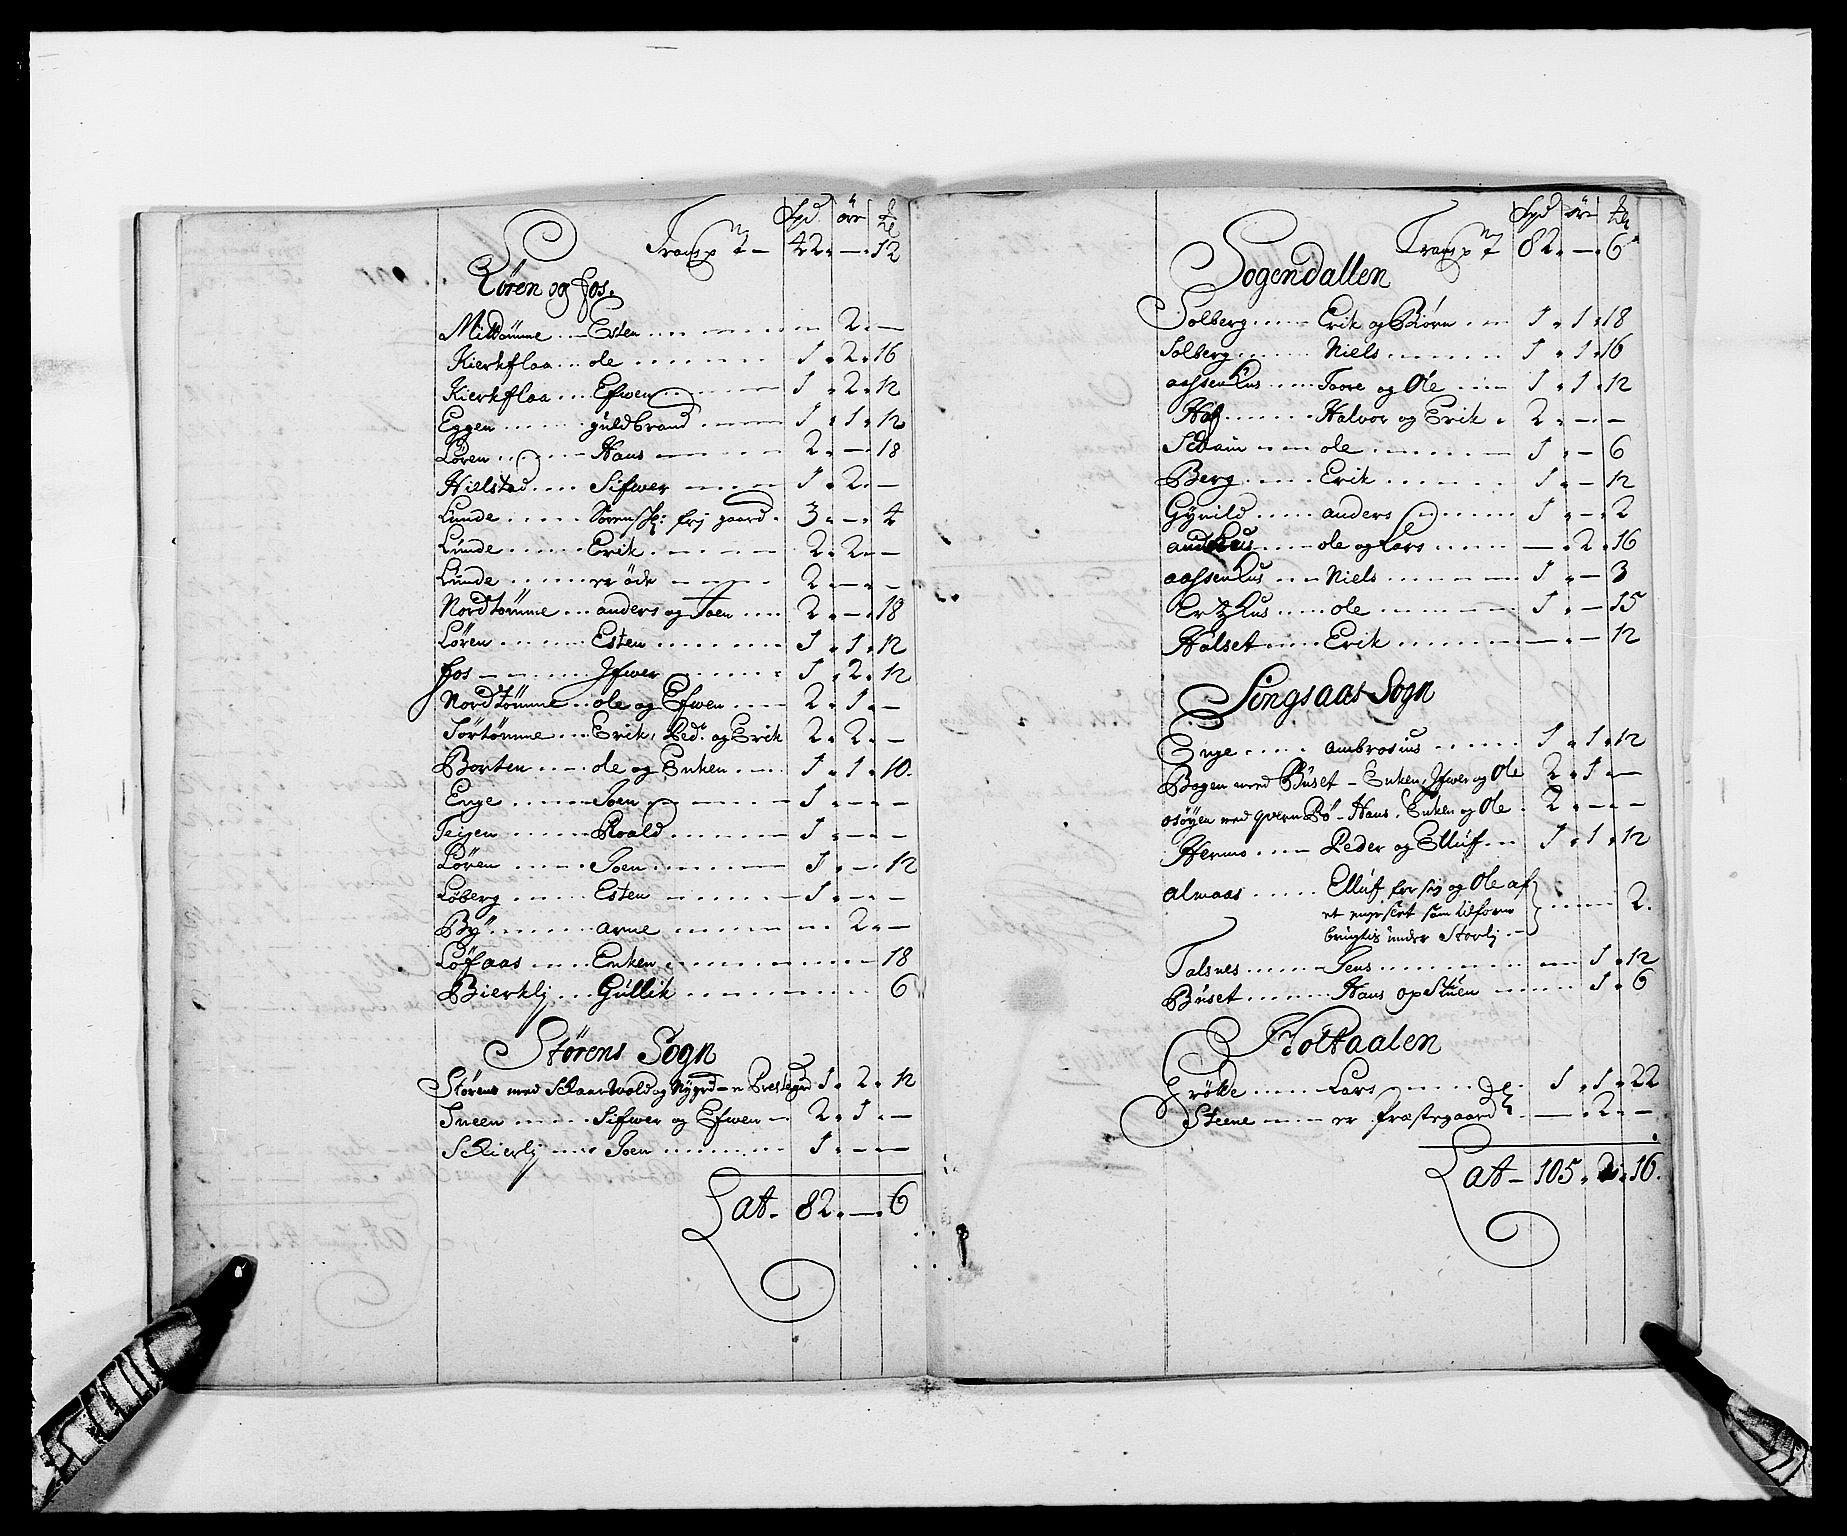 Spd ørr
Transpt - 42. - . 12
Løren og fos.
Midtømme Esten 2. -
Kierkflaa ole 1. 2. 16
Kierkflaa Efwen 1. 2. 12
Eggen guldbrand 1. 1. 12
Løren Hans 2. - 18
Hielstad Sifwer 1. 2. -
Lunde Søren frj gaard. 3. - . 4
Lunde Erik 2. 2. -
Lunde er öde 2. - . -
Nordtømme anders og Joen 2. - . 18
Løren Esten 1. 1. 12
fos Jfwer 1. 2. 12
Nordtømme ole og Efwen 2. 1. -
Sørtømme Erik, Ped: og Erik 2. 2. -
Borten ole og Enken 1. 1. 10.
Enge Joen 1. - . -
Teigen Roald 1. - . -
Løren Joen 1. - 12
Løberg Esten 1. - . -
Bÿ arne 2. -
Løfaas Enken 18
Bierklj Gullik 6
Størens Sogn
Størens med Schaarvold og Nygrd - er Prestegrd 1. 2. 12
Sneen Sifwer og Efwen 2. 1. -
Schierlj Joen 1. - -
Lat - 82. - . 6
Spd ørr
Transpt 82. - . 6
Sogendallen
Solberg Erik og Biørn 1. 1. 18
Solberg Niels 1. 1. 16
aassenhus Taore og Ole 1. 1. 12
Hof Halvor og Erik 2. - . -
ole 1. - 6
Berg Erik 1. - 12
Gÿnild anders 1. - . 2
ole og Lars - . 2. 16
aassenhus Niels 1. - 3
Ertzhus ole 1. - 15
Halset Erik - . - 12
Singsaas Sogn
Enge ambrosius 1. 1. 12
Bogen med Buset - Enken, Jfwer og Ole 2. 1. -
osøÿen med qvernBø - Hans, Enken og Ole 2. - . -
Hermo Peder og Elluf 1. 1. 12
almaas Elluf for sig og Ole af
et engeslet som tilforn
brugtis under Storlj - } 2.
Talsnes Jens 1. 12
Buset Hans opstuen 1. 6
Holtaalen
Grøtte Lars 1. 1. 22
Steene er præstegaard - . 2. -
Lat - 105. 2. 16.